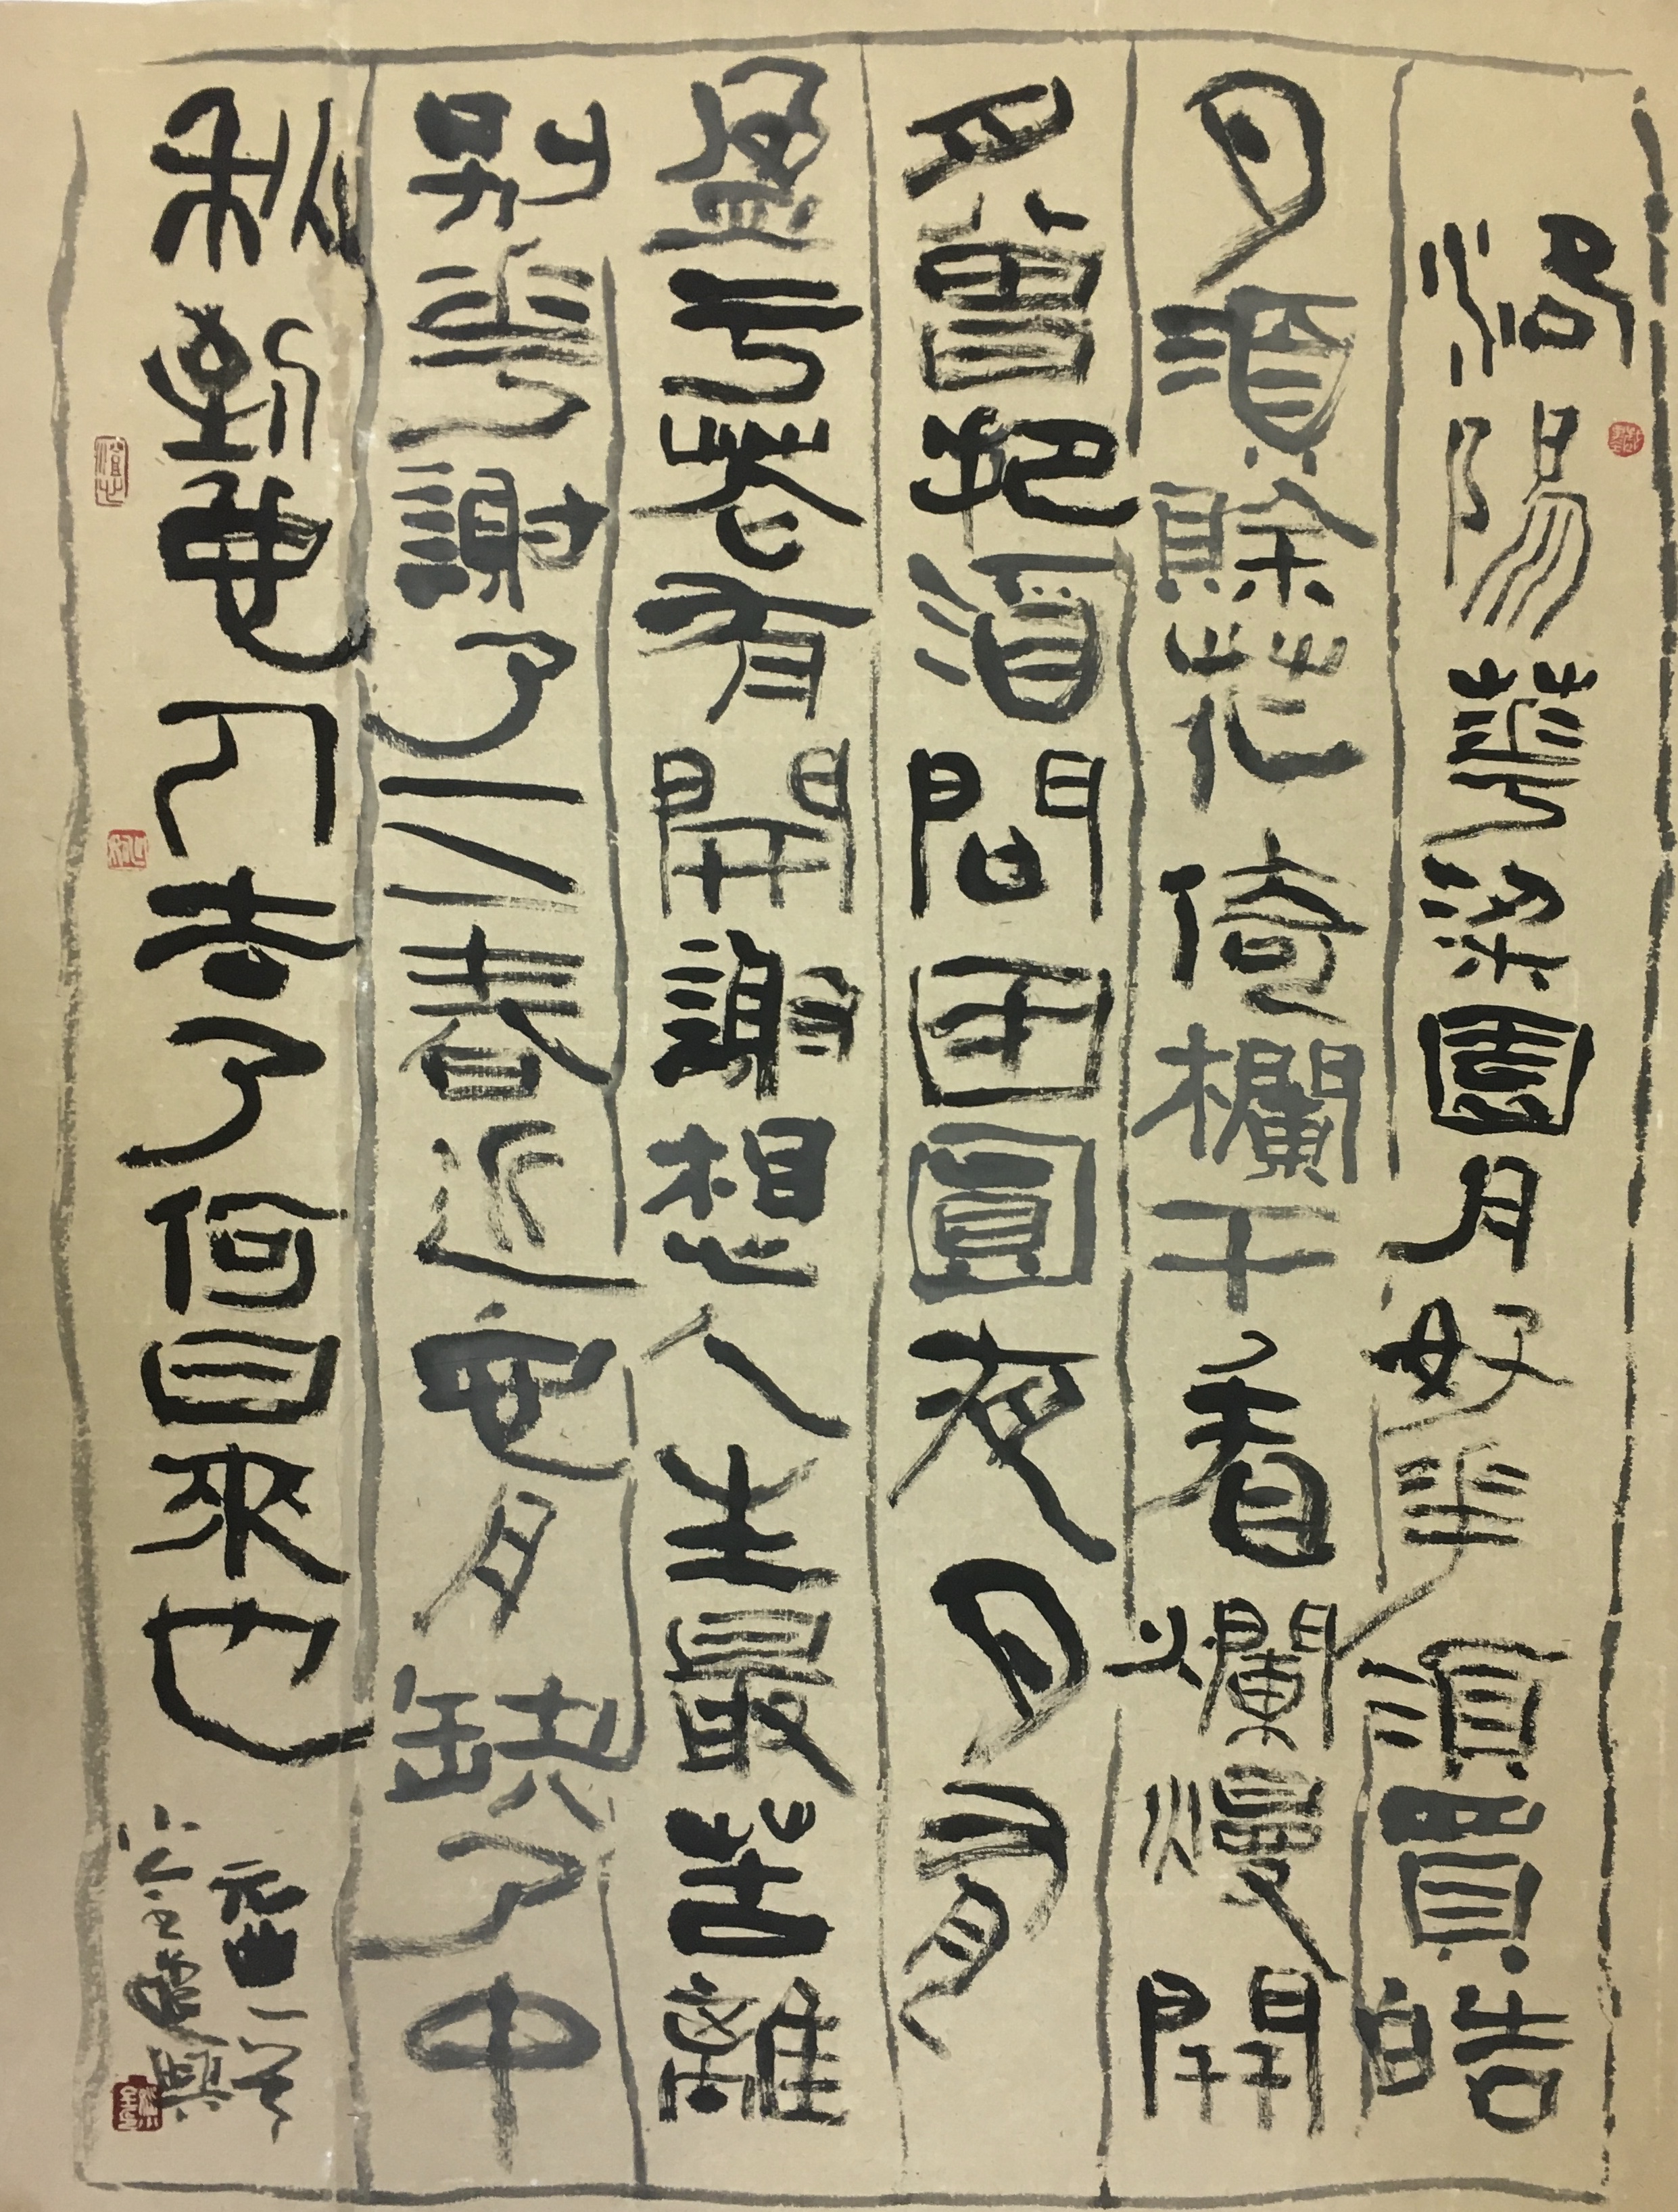 洛陽華梁園月好華須買皓
月須賒花倚欄干看爛熳開
月曾把酒問團圓夜月有
盈亏花有開謝想人生最苦離
別華謝了三春近也月缺了中
秋到也人去了何日來也
元曲一首